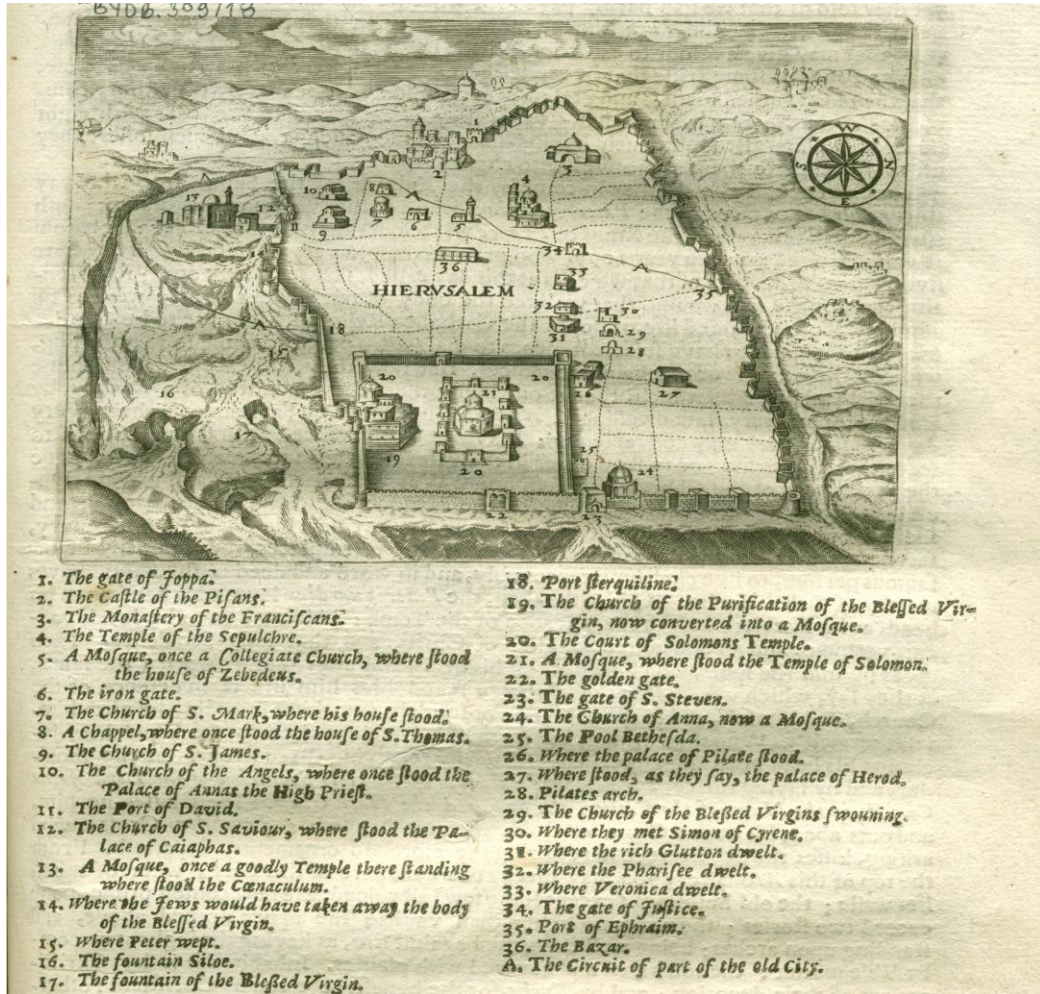 BYDB. 309/18
1
2
3
W
S
N
E
A
4
10
8
A
13
12
11
9
7
6
5
14
34
36
33
A
35
HIERVSALEM
32
30
A
18
31
29
15
28
20
21
20
26
27
16
17
19
20
25
24
22
23
1. The gate of Joppa.
2. The Caſtle of the Piſans.
3. The Monaſtery of the Franciſcans.
4. The Temple of the Sepulchre.
5. A Moſque, once a Collegiate Church, where ſtood
the houſe of Zebedeus.
6. The iron gate.
7. The Church of S. Mark, where his houſe ſtood.
8. A Chappel, where once ſtood the houſe of S. Thomas.
9. The Church of S. James.
10. The Church of the Angels, where once ſtood the
Palace of Annas the High Prieſt.
11. The Port of David.
12. The Church of S. Saviour, where ſtood the Pa-
lace of Caiaphas.
13. A Moſque, once a goodly Temple there ſtanding
where ſtood the Cœnaculum.
14. Where the Jews would have taken away the body
of the Bleſſed Virgin.
15. Where Peter wept.
16. The fountain Siloe.
17. The fountain of the Bleſſed Virgin.
18. Port ſterquiline.
19. The Church of the Purification of the Bleſſed Vir-
gin, now converted into a Moſque.
20. The Court of Solomons Temple.
21. A Moſque, where ſtood the Temple of Solomon.
22. The golden gate.
23. The gate of S. Steven.
24. The Church of Anna, now a Moſque.
25. The Pool Betheſda.
26. Where the palace of Pilate ſtood.
27. Where ſtood, as they ſay, the palace of Herod.
28. Pilates arch.
29. The Church of the Bleſſed Virgins ſwouning.
30. Where they met Simon of Cyrene.
31. Where the rich Glutton dwelt.
32. Where the Phariſee dwelt.
33. Where Veronica dwelt.
34. The gate of Juſtice.
35. Port of Ephraim.
36. The Bazar.
A. The Circuit of part of the old City.